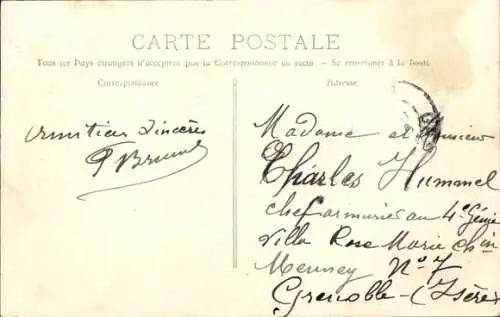 CARTE POSTALE
Tous les Pays étrangers n'acceptent pas la Correspondance au recto. - Se renseigner à la Poste.
Correspondance
Adresse
Amitiés Sincères
Madame et Monsieur
Charles Hummel
chef armurier au 4e Génie
Villa Rose Marie Chin
N° 7
Grenoble - (Isère)